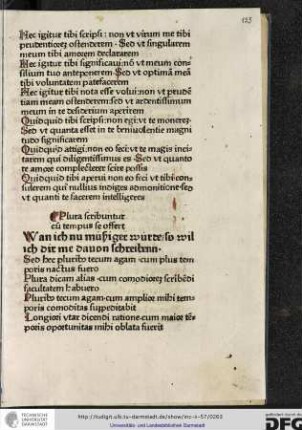 123
Hec igitur tibi scripsi: non vt virum me tibi
prudentiorez ostenderem. Sed vt singularem
meum tibi amorem declararem
Hec igitur tibi significaui nō vt meum con-
silium tuo anteponerem. Sed vt optimā meā
tibi voluntatem patefacerem
Hec igitur tibi nota esse volui: non vt prudē
tiam meam ostenderem: sed vt ardentissimum
meum in te desiderium aperirem
Quidquid tibi scripsi: non egi: vt te monerez
Sed vt quanta esset in beniuolentie magni
tudo significarem
Quidquid attigi: non eo feci: vt te magis inci-
tarem qui diligentissimus es. Sed vt quanto
te amore complecterer scire possis
Quidquid tibi aperui non eo feci vt tibi con-
sulerem qui nullius indiges admonitione sed
vt quanti te facerem intelligeres
Plura scribuntur
cū tempus se offert
Wan ich nu mußiger würde, so wil
ich dir me dauon schreiben.
Sed hec pluribꝰ tecum agam. cum plus tem
poris nactus fuero
Plura dicam alias. cum comodiorez scribēdi
facultatem habuero
Pluribꝰ tecum agam. cum amplior mihi tem
poris comoditas suppeditabit
Longiori vtar dicendi ratione. cum maior tē-
poris oportunitas mihi oblata fuerit
TECHNISCHE
UNIVERSITÄT
DARMSTADT
http://tudigit.ulb.tu-darmstadt.de/show/inc-ii-57/0263
Universitäts- und Landesbibliothek Darmstadt
DFG